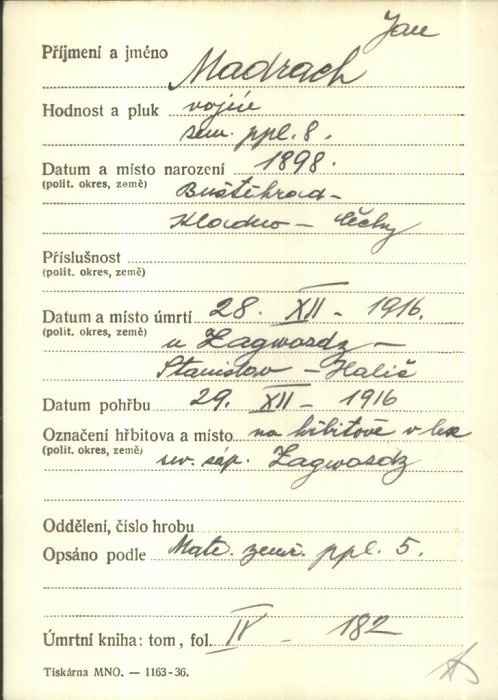 Jan
Příjmení a jméno Madrach
Hodnost a pluk vojín
zem. ppl. 8.
Datum a místo narození 1898.
(polit. okres, země) Buštěhrad -
Kladno - Čechy
Příslušnost
(polit. okres, země)
Datum a místo úmrtí 28. XII - 1916.
(polit. okres, země) u Zagwozdz -
Stanislav - Halič
Datum pohřbu 29. XII - 1916
Označení hřbitova a místo na hřbitově v lese
(polit. okres, země) sev. záp. Zagwozdz
Oddělení, číslo hrobu
Opsáno podle Matr. zemř. ppl. 5.
Úmrtní kniha: tom, fol. IV - 182
Tiskárna MNO. — 1163-36.